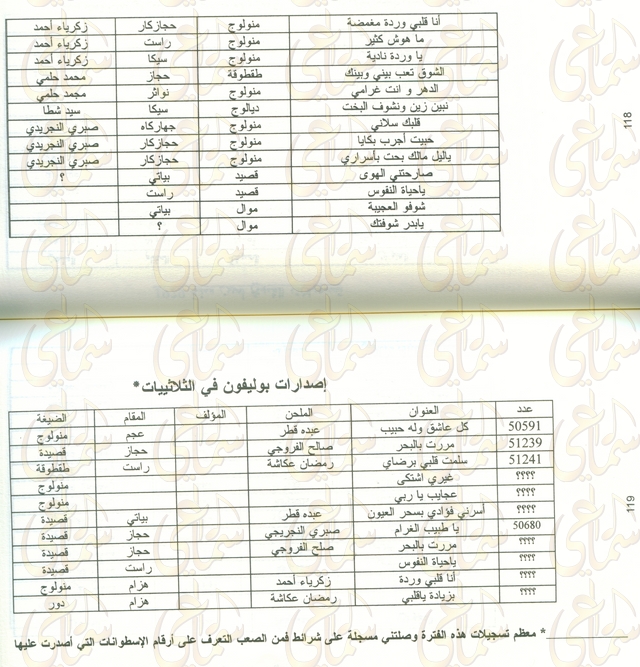 أنا قلبي وردة مغمضة منولوج حجازكار زكرياء أحمد
ما هوش كثير منولوج راست زكرياء أحمد
يا وردة نادية منولوج سيكا زكرياء أحمد
الشوق تعب بيني وبينك طقطوقة حجاز محمد حلمي
الدهر و انت غرامي منولوج نواثر محمد حلمي
نبين زين ونشوف البخت ديالوج سيكا سيد شطا
قلبك سلاني منولوج جهاركاه صبري النجريدي
حبيت أجرب بكايا منولوج حجازكار صبري النجريدي
ياليل مالك بحت بأسراري منولوج حجازكار صبري النجريدي
صارحتني الهوى قصيد بياتي ؟
ياحياة النفوس قصيد راست
شوفو العجيبة موال بياتي
يابدر شوفتك موال ؟
118
إصدارات بوليفون في الثلاثييات*
عدد العنوان الملحن المؤلف المقام الضيغة
50591 كل عاشق وله حبيب عبده قطر عجم منولوج
51239 مررت بالبحر صالح الفروجي حجاز قصيدة
51241 سلمت قلبي برضاي رمضان عكاشة راست طقطوقة
؟؟؟؟ غيري اشتكى منولوج
؟؟؟؟ عجايب يا ربي منولوج
؟؟؟؟ أسرني فؤادي بسحر العيون عبده قطر بياتي قصيدة
50680 يا طبيب الغرام صبري النجريجي حجاز قصيدة
؟؟؟؟ مررت بالبحر صلح الفروجي حجاز قصيدة
؟؟؟؟ ياحياة النفوس راست قصيدة
؟؟؟؟ أنا قلبي وردة زكرياء أحمد هزام منولوج
؟؟؟؟ بزيادة ياقلبي رمضان عكاشة هزام دور
119
* معظم تسجيلات هذه الفترة وصلتني مسجلة على شرائط فمن الصعب التعرف على أرقام الإسطوانات التي أصدرت عليها